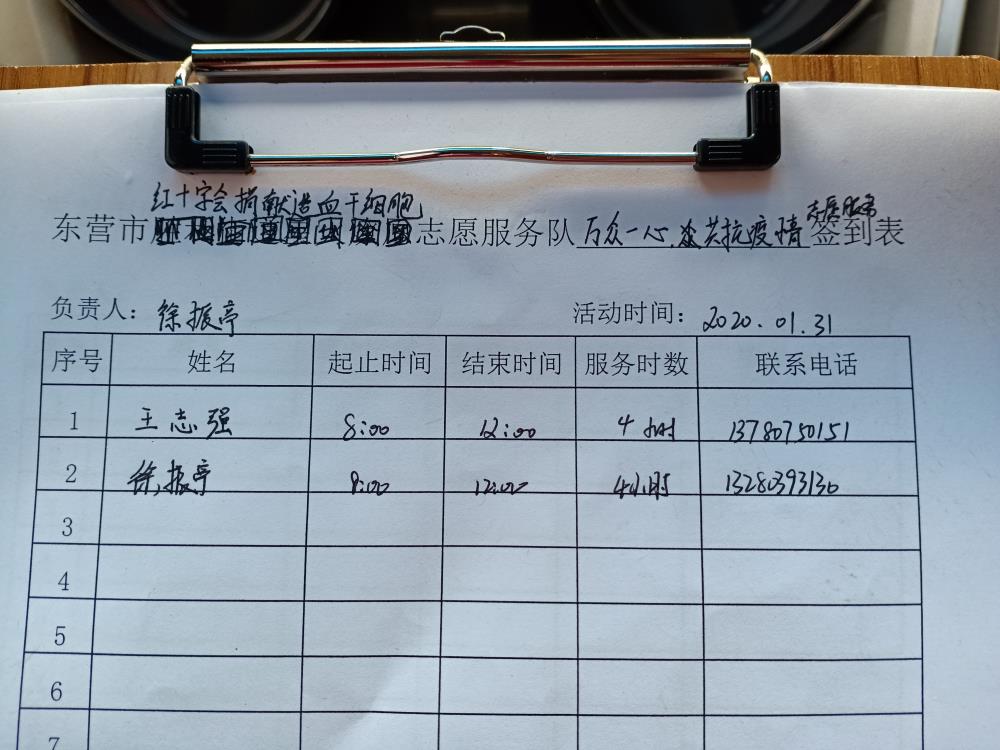 红十字会捐献造血干细胞
东营市志愿服务队万众一心,共抗疫情志愿服务签到表
负责人：徐振亭 活动时间：2020.01.31
序号 姓名 起止时间 结束时间 服务时数 联系电话
1 王志强 8:00 12:00 4小时 13780750151
2 徐振亭 8:00 12:00 4小时 13280393130
3
4
5
6
7